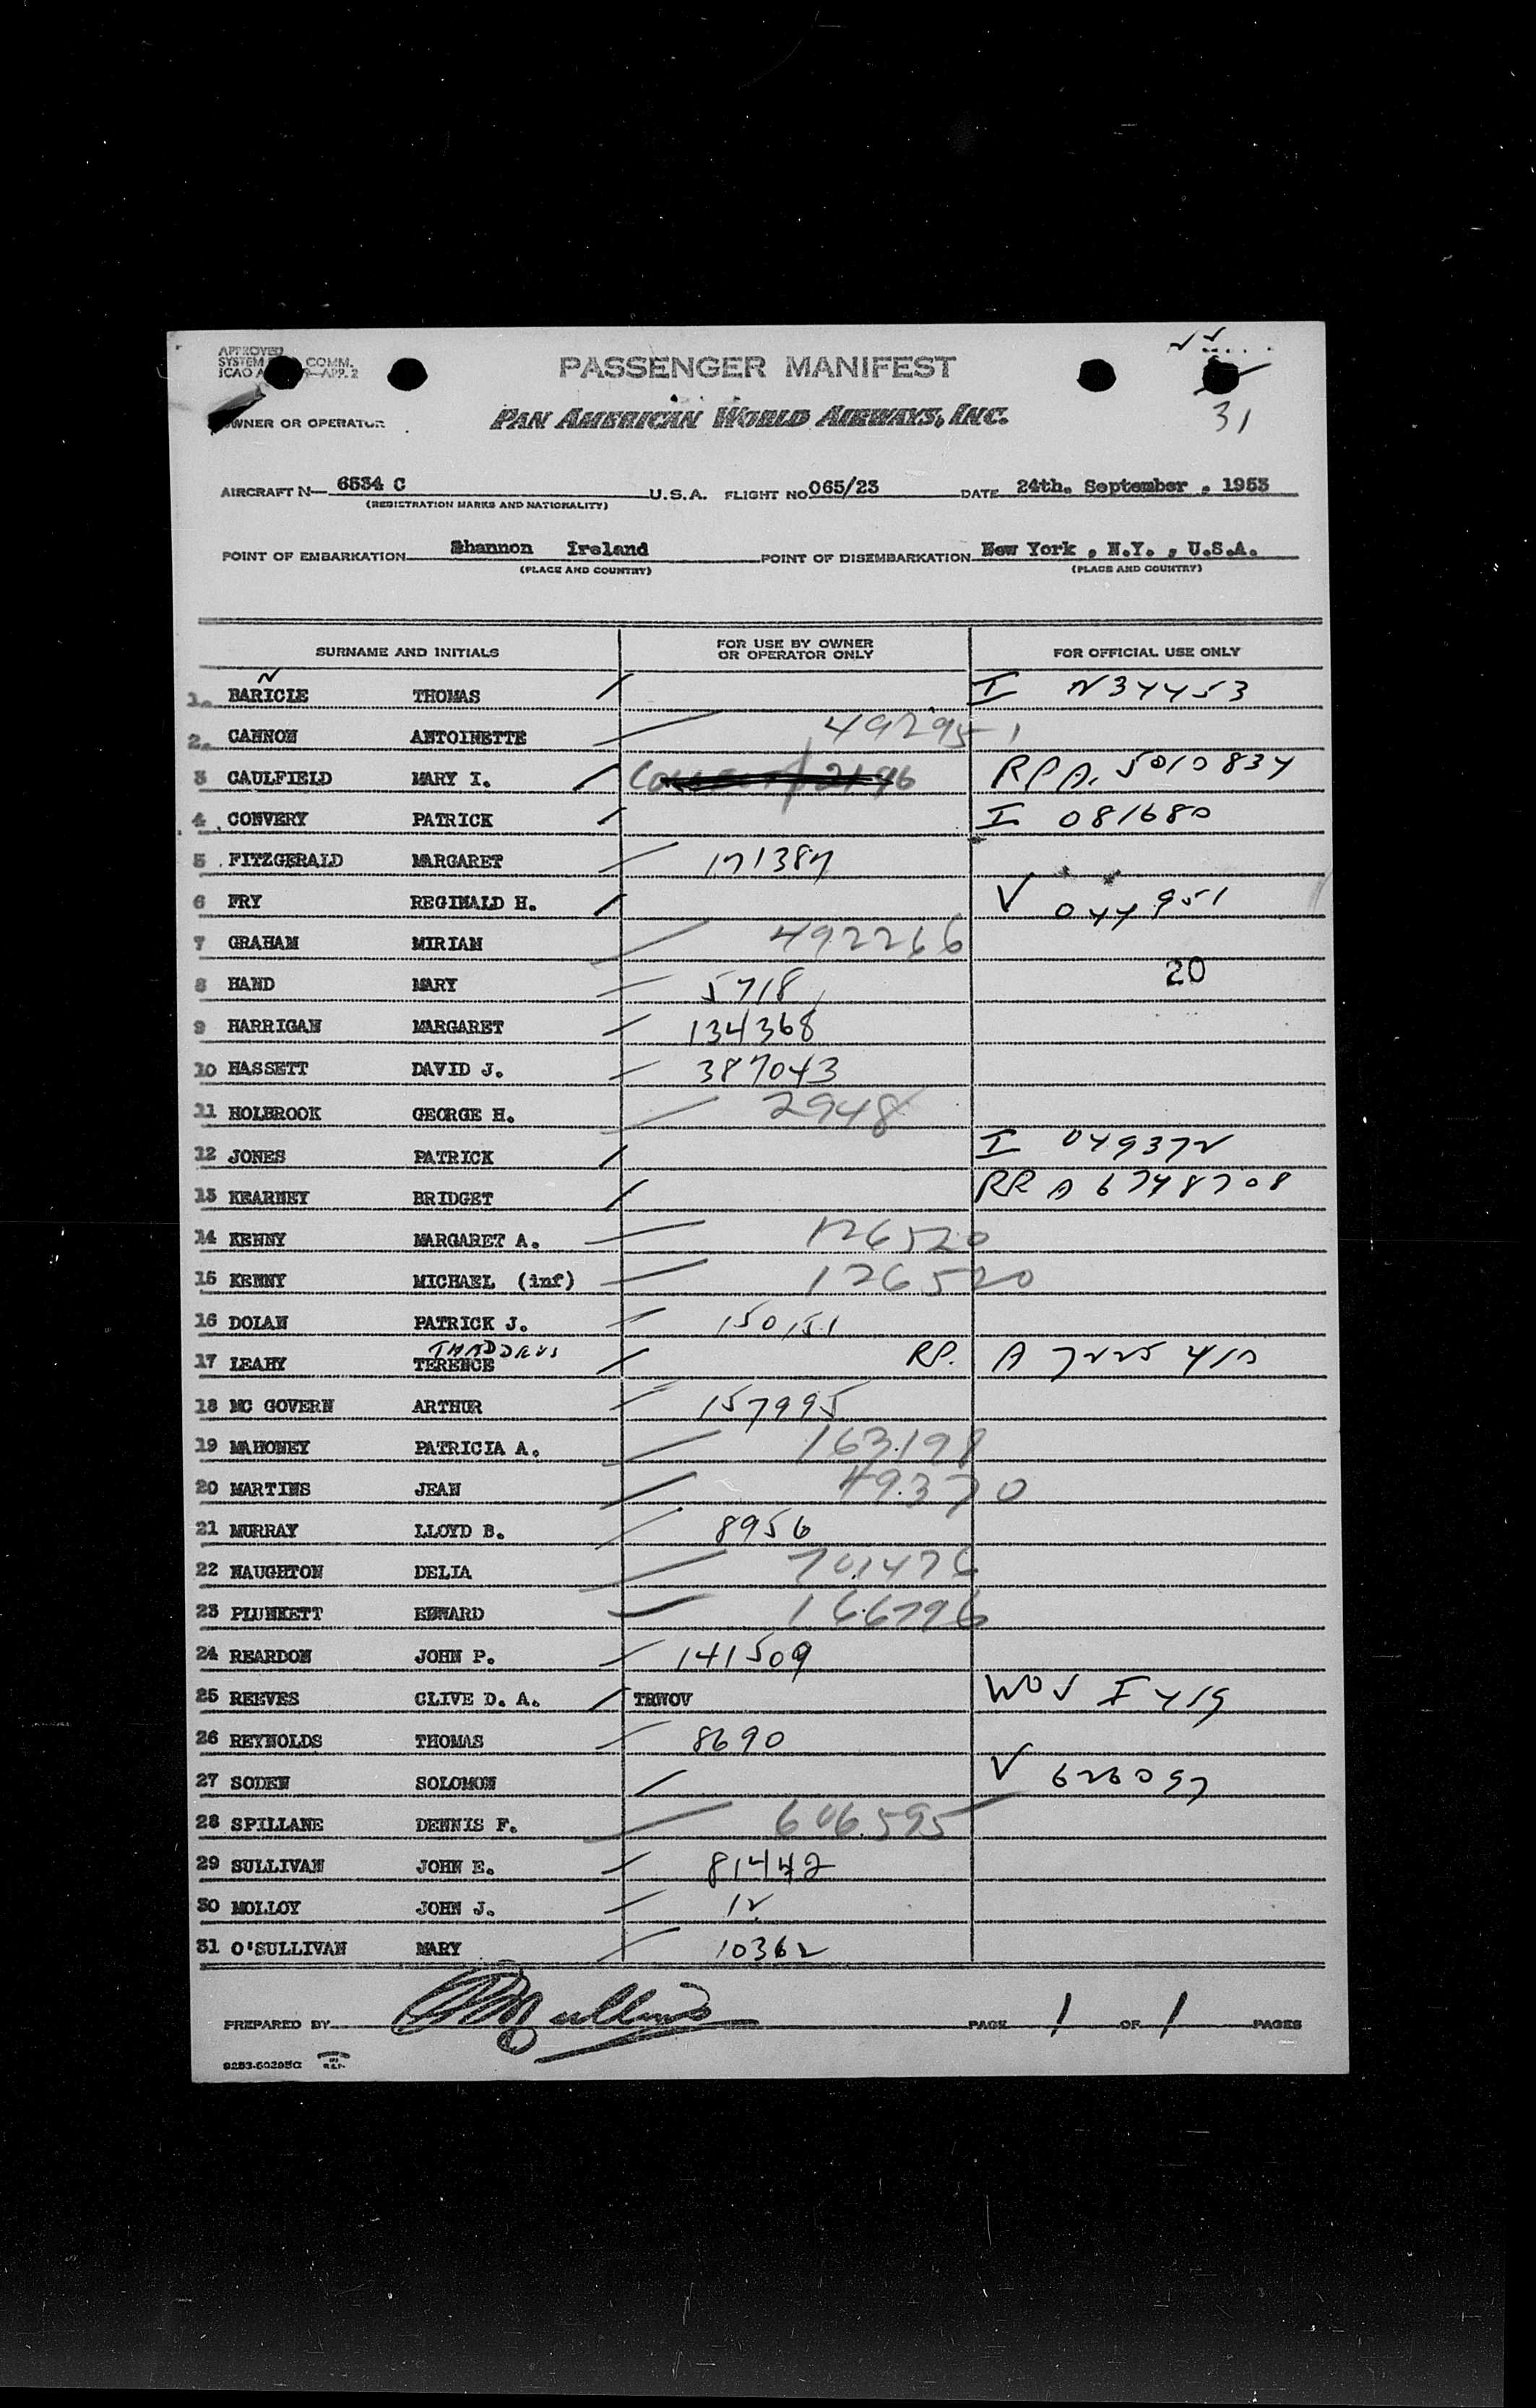 APPROVED
SYSTEM COMM.
ICAO A —APP. 2
PASSENGER MANIFEST
31
OWNER OR OPERATOR
PAN AMERICAN WORLD AIRWAYS, INC.
AIRCRAFT N— 6534 C U.S.A. FLIGHT NO 065/23 DATE 24th. September . 1953
(REGISTRATION MARKS AND NATIONALITY)
POINT OF EMBARKATION Shannon Ireland POINT OF DISEMBARKATION New York , N.Y. , U.S.A.
(PLACE AND COUNTRY) (PLACE AND COUNTRY)
SURNAME AND INITIALS FOR USE BY OWNER OR OPERATOR ONLY FOR OFFICIAL USE ONLY
N
1. BARICLE THOMAS / I N34453
2. CANNON ANTOINETTE 492951
3 CAULFIELD MARY I. / RPA. 5010834
4 . CONVERY PATRICK / I 081680
5 . FITZGERALD MARGARET 171387
6 FRY REGINALD H. / V 044951
7 GRAHAM MIRIAM 492266
8 HAND MARY 5718 20
9 HARRIGAN MARGARET 134368
10 HASSETT DAVID J. 387043
11 HOLBROOK GEORGE H. 2948
12 JONES PATRICK / I 049372
13 KEARNEY BRIDGET / RR A 6748708
14 KENNY MARGARET A. 126520
15 KENNY MICHAEL (inf) 126520
16 DOLAN PATRICK J. 150151
THADDEUS
17 LEAHY TERENCE / RP. A 7225410
18 MC GOVERN ARTHUR 157995
19 MAHONEY PATRICIA A. 163198
20 MARTINS JEAN 49370
21 MURRAY LLOYD B. 8956
22 NAUGHTON DELIA 701476
23 PLUNKETT EDWARD 166796
24 REARDON JOHN P. 141509
25 REEVES CLIVE D. A. / TRWOV WOV I 419
26 REYNOLDS THOMAS 8690
27 SODEN SOLOMON / V 626097
28 SPILLANE DENNIS F. 606595
29 SULLIVAN JOHN E. 81442
30 MOLLOY JOHN J. 12
31 O'SULLIVAN MARY 10362
PREPARED BY PAGE 1 OF 1 PAGES